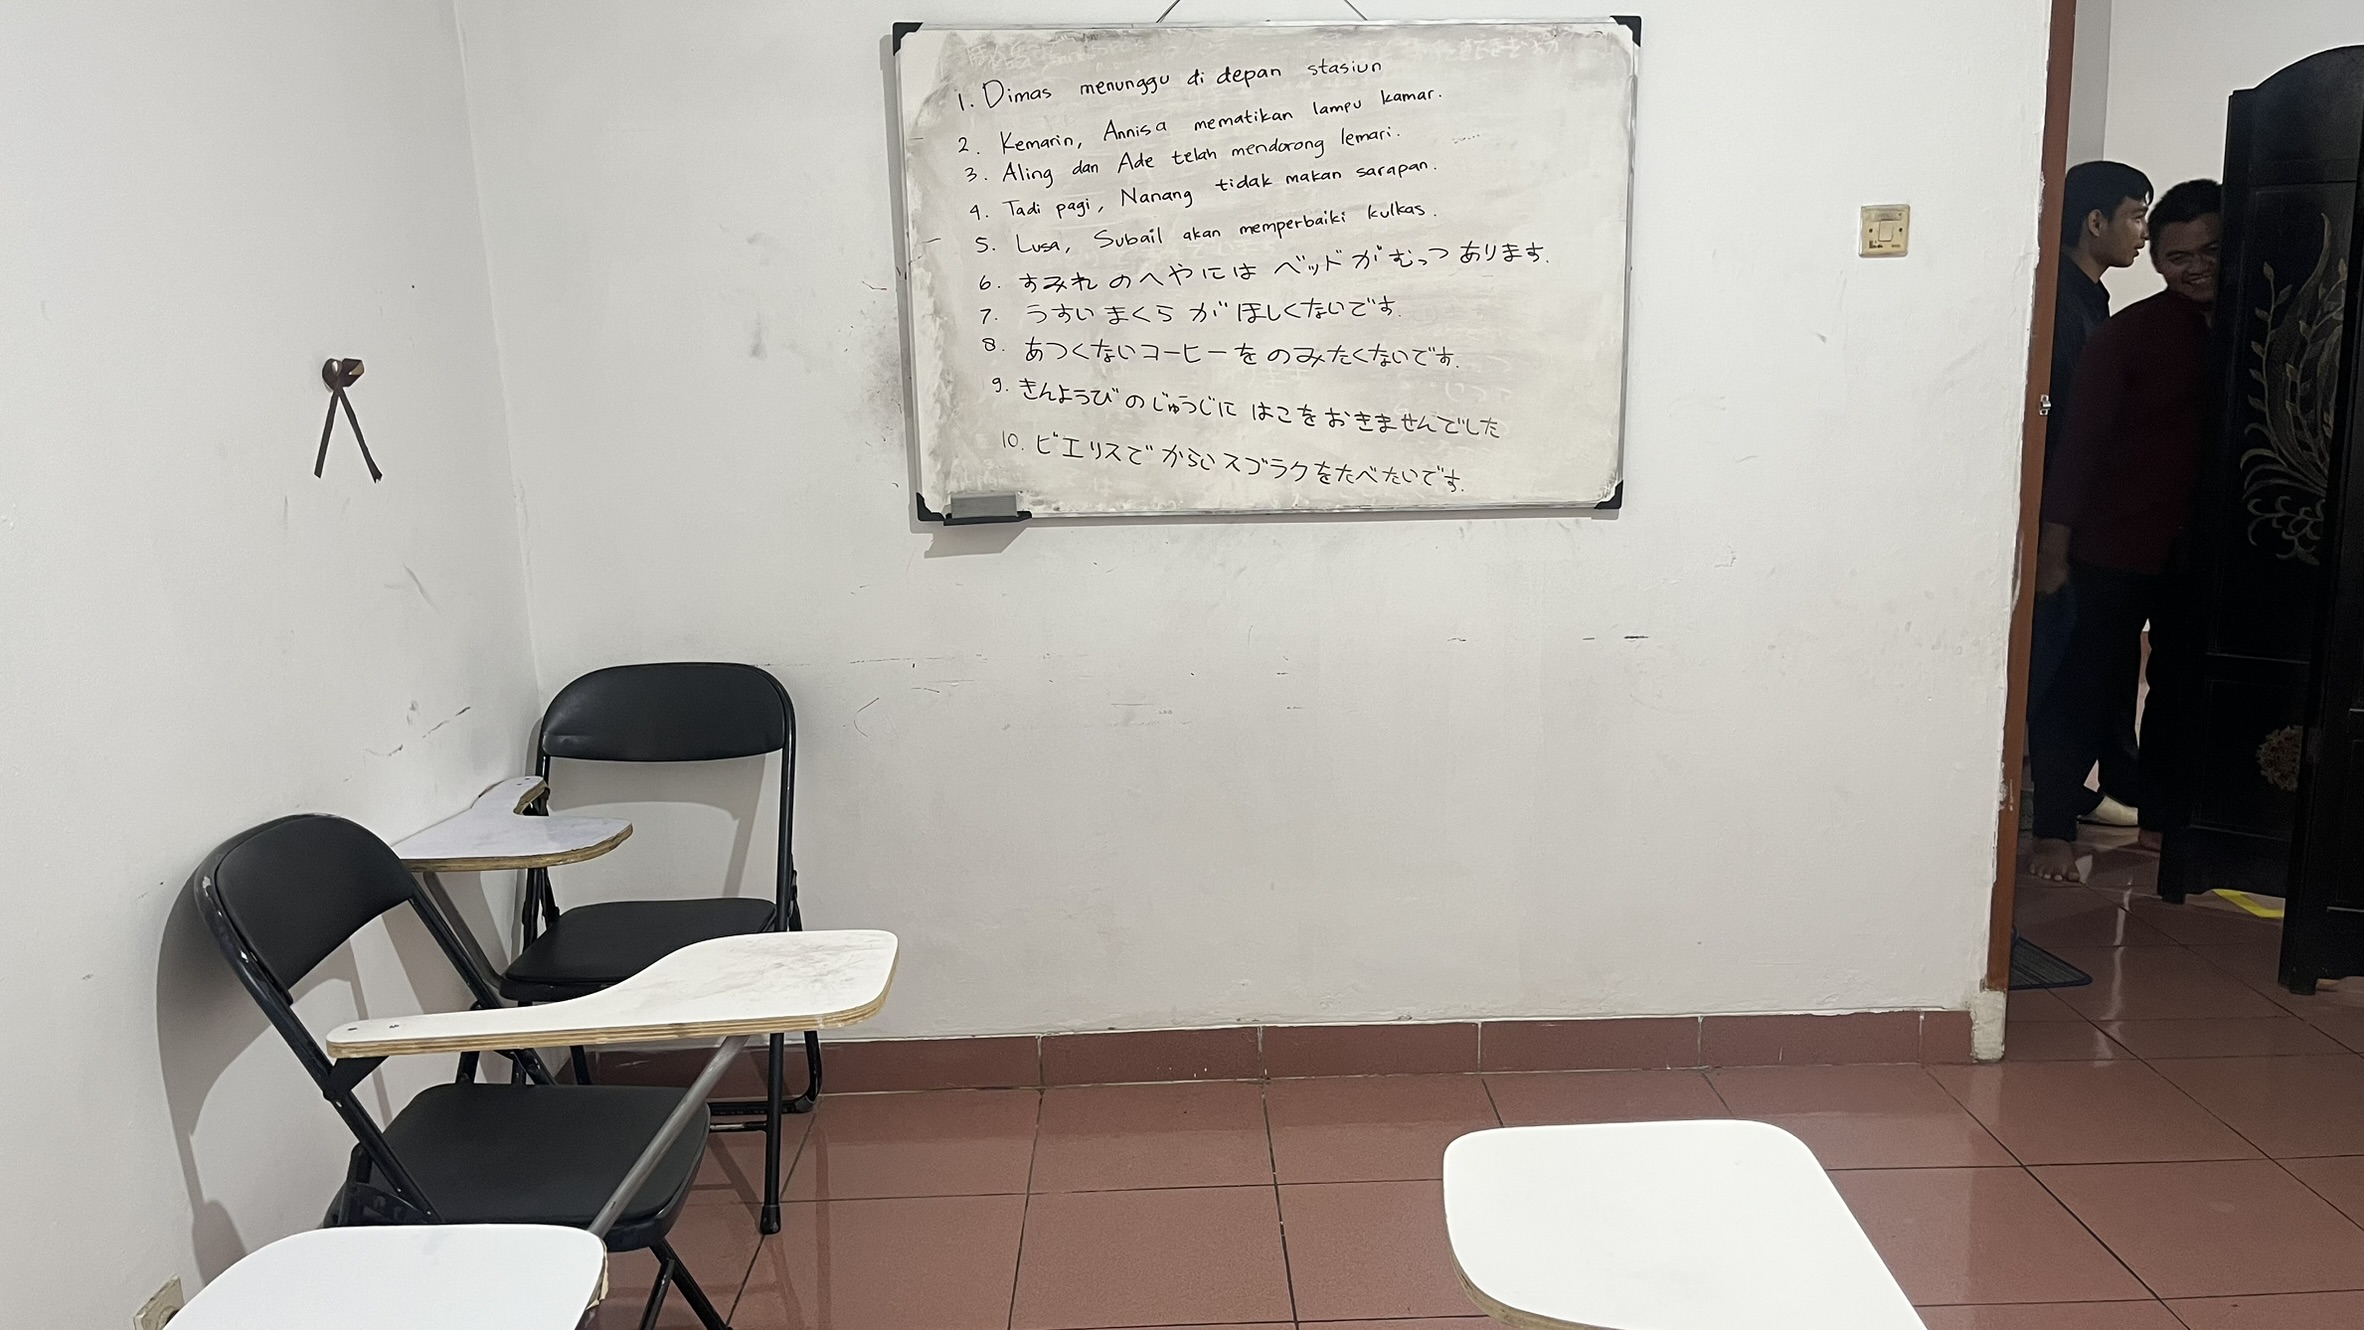 1. Dimas menunggu di depan stasiun
2. Kemarin, Annisa mematikan lampu kamar.
3. Aling dan Ade telah mendorong lemari.
4. Tadi pagi, Nanang tidak makan sarapan.
5. Lusa, Subail akan memperbaiki kulkas.
6. すみれ のへやには ベッドが むっつ あります.
7. うすい まくら が ほしくないです.
8. あつくないコーヒーを のみたくないです.
9. きんようび の じゅうじに はこを おきませんでした
10. ピエリスで からい スブラクをたべたいです.